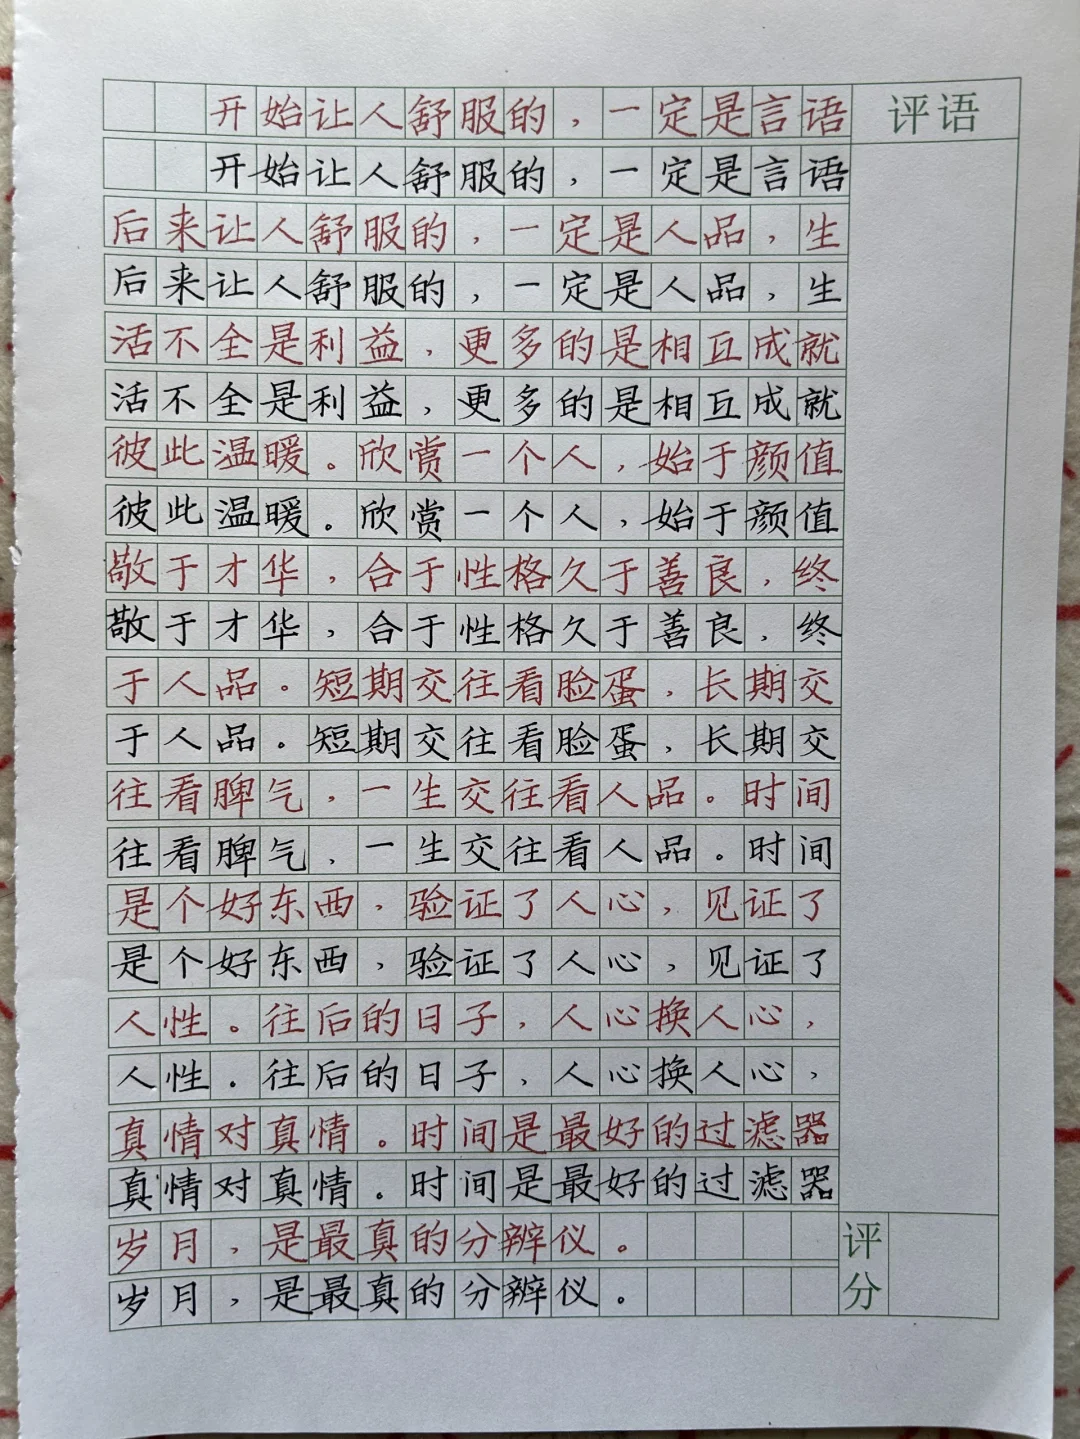 开始让人舒服的，一定是言语
评语
开始让人舒服的，一定是言语
后来让人舒服的，一定是人品，生
后来让人舒服的，一定是人品，生
活不全是利益，更多的是相互成就
活不全是利益，更多的是相互成就
彼此温暖。欣赏一个人，始于颜值
彼此温暖。欣赏一个人，始于颜值
敬于才华，合于性格久于善良，终
敬于才华，合于性格久于善良，终
于人品。短期交往看脸蛋，长期交
于人品。短期交往看脸蛋，长期交
往看脾气，一生交往看人品。时间
往看脾气，一生交往看人品。时间
是个好东西，验证了人心，见证了
是个好东西，验证了人心，见证了
人性。往后的日子，人心换人心，
人性。往后的日子，人心换人心，
真情对真情。时间是最好的过滤器
真情对真情。时间是最好的过滤器
岁月，是最真的分辨仪。
岁月，是最真的分辨仪。
评分